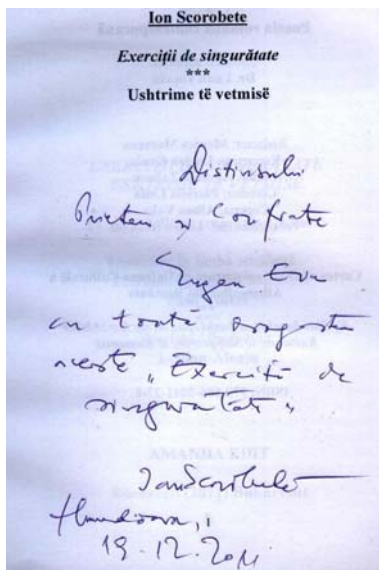 Ion Scorobete
Exerciții de singurătate
***
Ushtrime të vetmisë
Distinsului
Prieten și Confrate
Eugen Evu
cu toată dragostea
aceste „Exerciții de
singurătate"
Ion Scorobete
Hunedoara,
19.12.2011